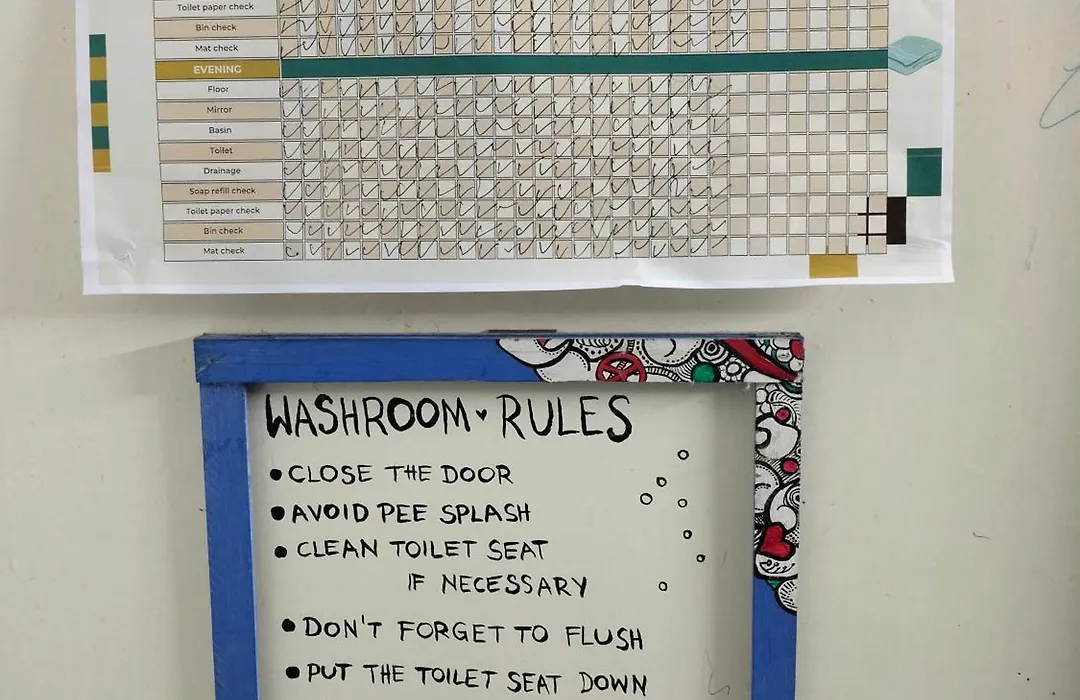 Toilet paper check
Bin check
Mat check
EVENING
Floor
Mirror
Basin
Toilet
Drainage
Soap refill check
Toilet paper check
Bin check
Mat check
WASHROOM RULES
CLOSE THE DOOR
AVOID PEE SPLASH
CLEAN TOILET SEAT
IF NECESSARY
DON'T FORGET TO FLUSH
PUT THE TOILET SEAT DOWN